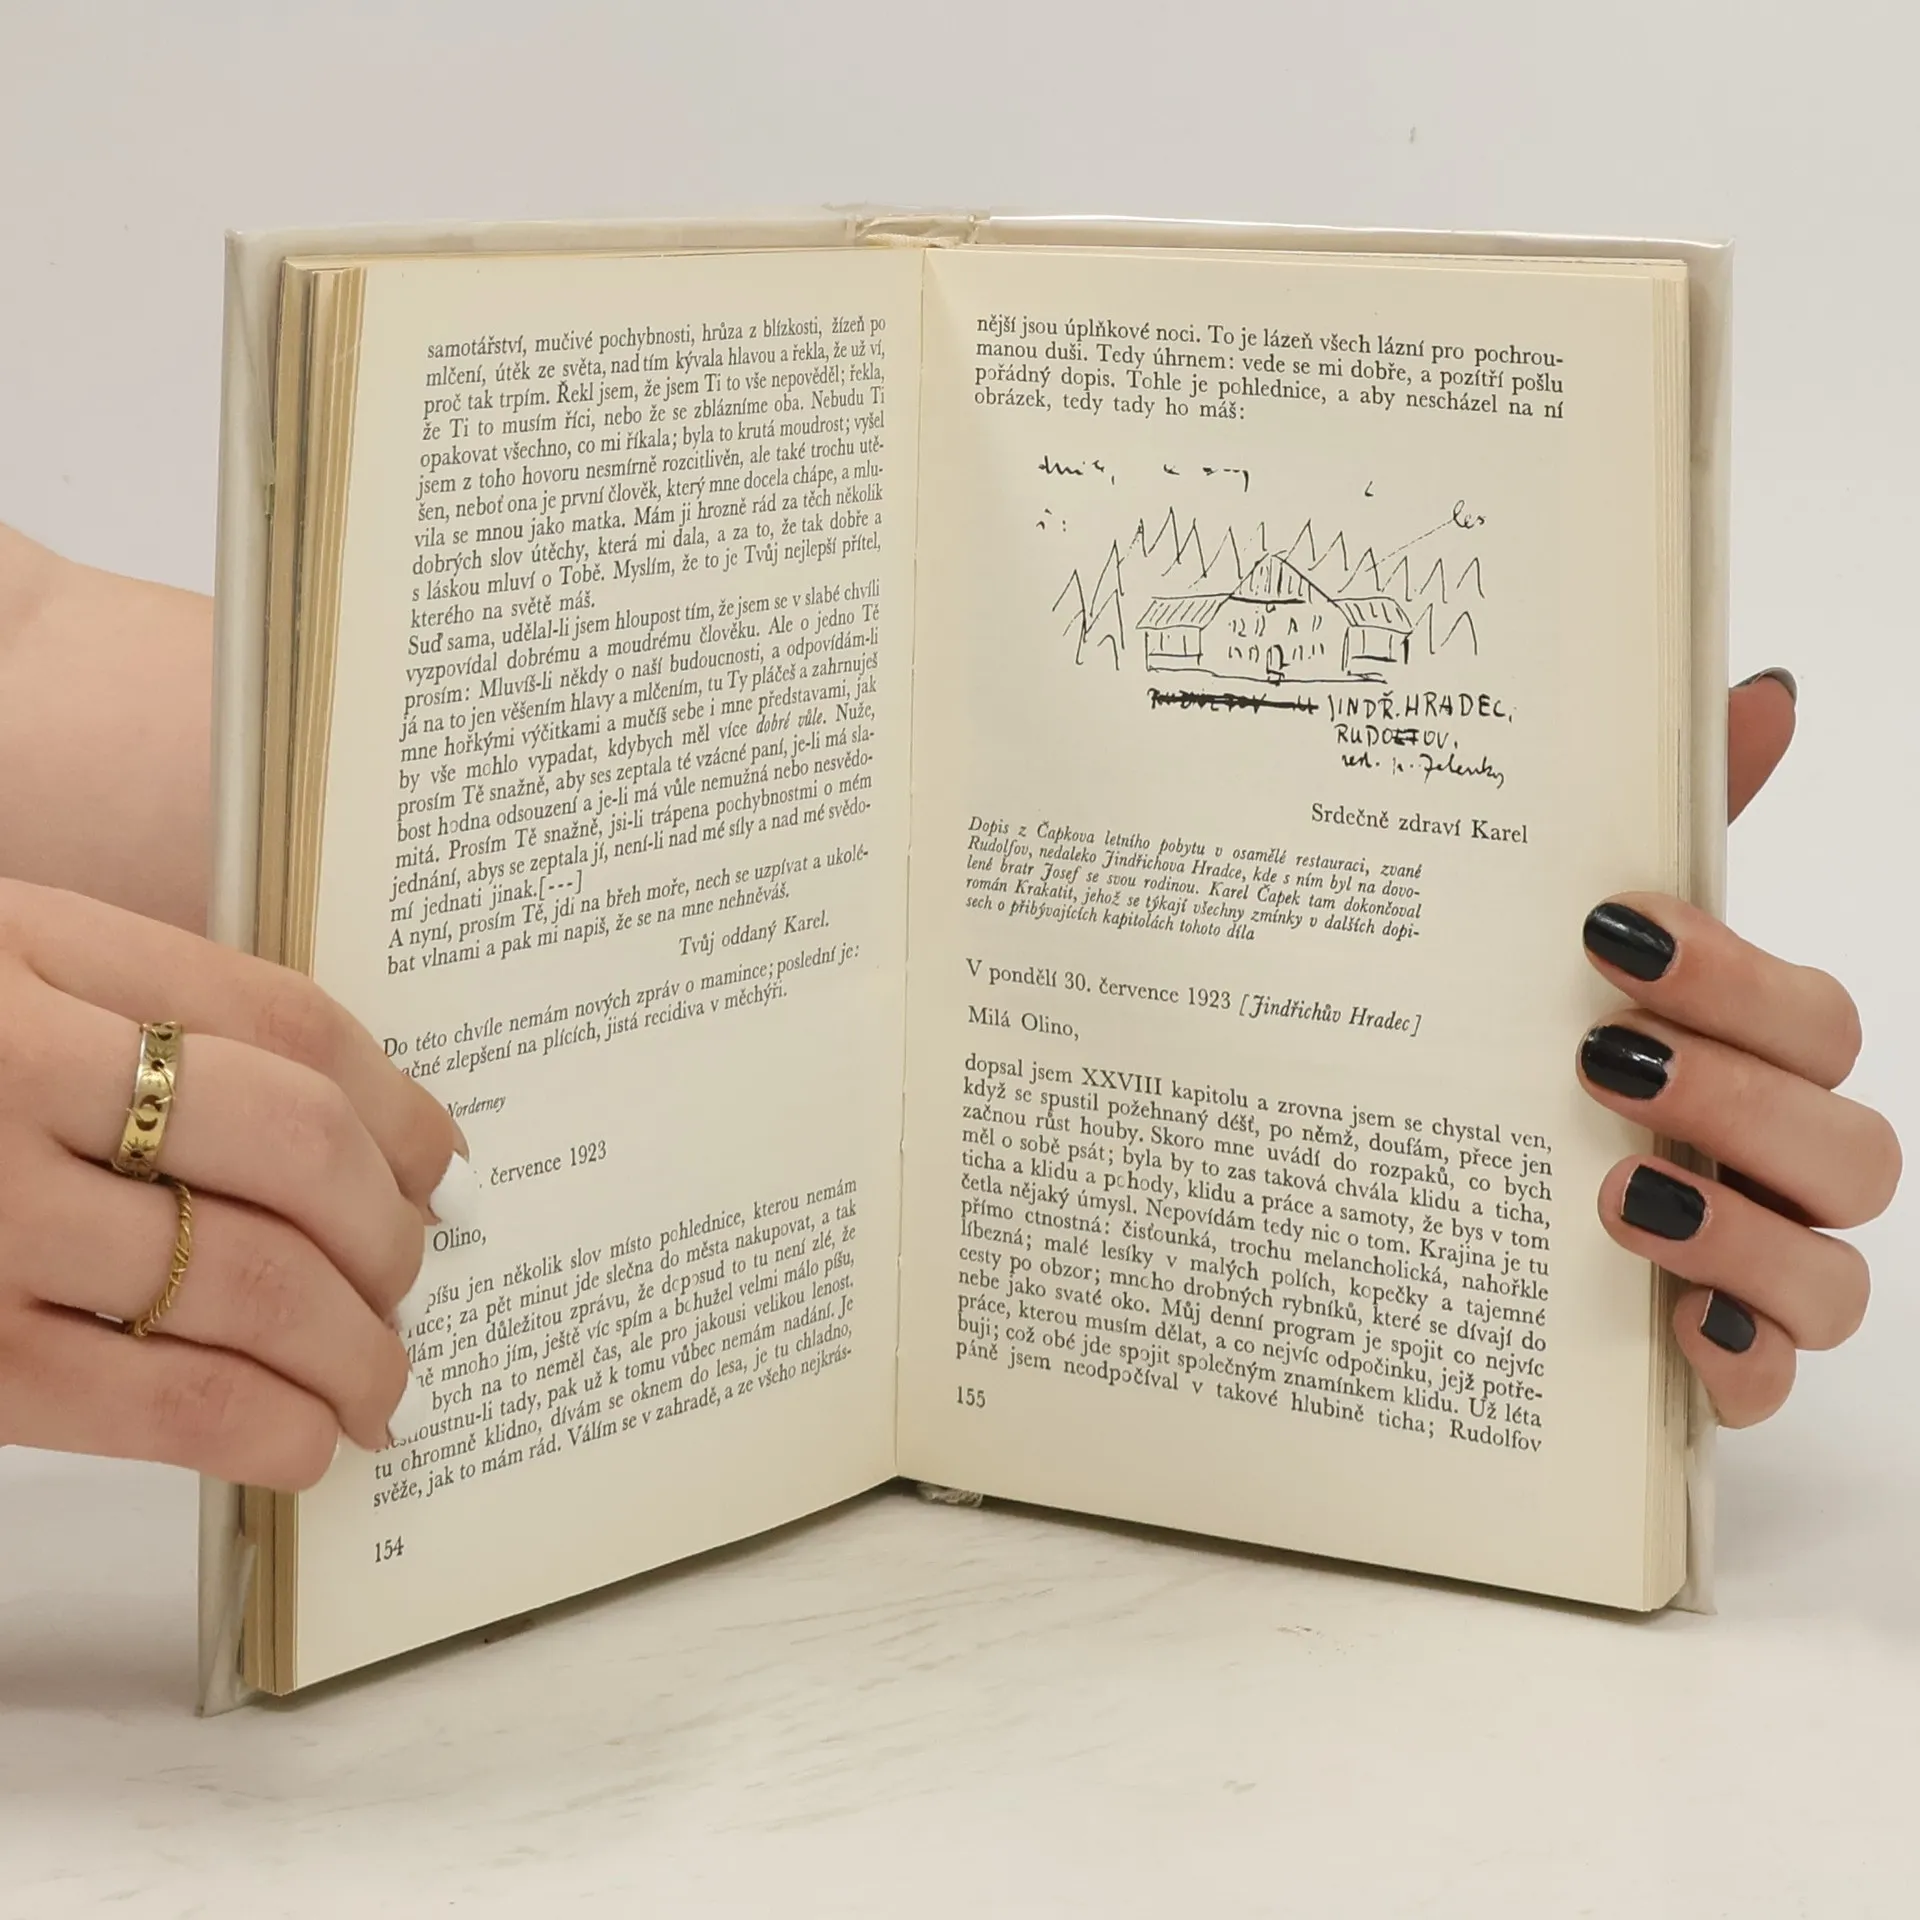 samotářství, mučivé pochybnosti, hrůza z blízkosti, žízeň po
mlčení, útěk ze světa, nad tím kývala hlavou a řekla, že už ví,
proč tak trpím. Řekl jsem, že jsem Ti to vše nepověděl; řekla,
že Ti to musím říci, nebo že se zblázníme oba. Nebudu Ti
opakovat všechno, co mi říkala; byla to krutá moudrost; vyšel
jsem z toho hovoru nesmírně rozcitlivěn, ale také trochu utě-
šen, neboť ona je první člověk, který mne docela chápe, a mlu-
vila se mnou jako matka. Mám ji hrozně rád za těch několik
dobrých slov útěchy, která mi dala, a za to, že tak dobře a
s láskou mluví o Tobě. Myslím, že to je Tvůj nejlepší přítel,
kterého na světě máš.
Suď sama, udělal-li jsem hloupost tím, že jsem se v slabé chvíli
vyzpovídal dobrému a moudrému člověku. Ale o jedno Tě
prosím: Mluvíš-li někdy o naší budoucnosti, a odpovídám-li
já na to jen věšením hlavy a mlčením, tu Ty pláčeš a zahrnuješ
mne hořkými výčitkami a mučíš sebe i mne představami, jak
by vše mohlo vypadat, kdybych měl více dobré vůle. Nuže,
prosím Tě snažně, aby ses zeptala té vzácné paní, je-li má sla-
bost hodna odsouzení a je-li má vůle nemužná nebo nesvědo-
mitá. Prosím Tě snažně, jsi-li trápena pochybnostmi o mém
jednání, abys se zeptala jí, není-li nad mé síly a nad mé svědo-
mí jednati jinak.[---]
A nyní, prosím Tě, jdi na břeh moře, nech se uzpívat a ukolé-
bat vlnami a pak mi napiš, že se na mne nehněváš.
Tvůj oddaný Karel.
Do této chvíle nemám nových zpráv o mamince; poslední je:
značné zlepšení na plících, jistá recidiva v měchýři.
Norderney
. července 1923
Olino,
píšu jen několik slov místo pohlednice, kterou nemám
ruce; za pět minut jde slečna do města nakupovat, a tak
jen důležitou zprávu, že doposud to tu není zlé, že
mnoho jím, ještě víc spím a bohužel velmi málo píšu,
bych na to neměl čas, ale pro jakousi velikou lenost.
tady, pak už k tomu vůbec nemám nadání. Je
tu ohromně klidno, dívám se oknem do lesa, je tu chladno,
svěže, jak to mám rád. Válím se v zahradě, a ze všeho nejkrás-
154
nější jsou úplňkové noci. To je lázeň všech lázní pro pochrou-
manou duši. Tedy úhrnem: vede se mi dobře, a pozítří pošlu
pořádný dopis. Tohle je pohlednice, a aby nescházel na ní
obrázek, tedy tady ho máš:
les
JINDŘ. HRADEC,
RUDOLFOV.
Srdečně zdraví Karel
Dopis z Čapkova letního pobytu v osamělé restauraci, zvané
Rudolfov, nedaleko Jindřichova Hradce, kde s ním byl na dovo-
lené bratr Josef se svou rodinou. Karel Čapek tam dokončoval
román Krakatit, jehož se týkají všechny zmínky v dalších dopi-
sech o přibývajících kapitolách tohoto díla
V pondělí 30. července 1923 [Jindřichův Hradec]
Milá Olino,
dopsal jsem XXVIII kapitolu a zrovna jsem se chystal ven,
když se spustil požehnaný déšť, po němž, doufám, přece jen
začnou růst houby. Skoro mne uvádí do rozpaků, co bych
měl o sobě psát; byla by to zas taková chvála klidu a ticha,
ticha a klidu a pohody, klidu a práce a samoty, že bys v tom
četla nějaký úmysl. Nepovídám tedy nic o tom. Krajina je tu
přímo ctnostná: čisťounká, trochu melancholická, nahořkle
líbezná; malé lesíky v malých polích, kopečky a tajemné
cesty po obzor; mnoho drobných rybníků, které se dívají do
nebe jako svaté oko. Můj denní program je spojit co nejvíc
práce, kterou musím dělat, a co nejvíc odpočinku, jejž potře-
buji; což obé jde spojit společným znamínkem klidu. Už léta
páně jsem neodpočíval v takové hlubině ticha; Rudolfov
155